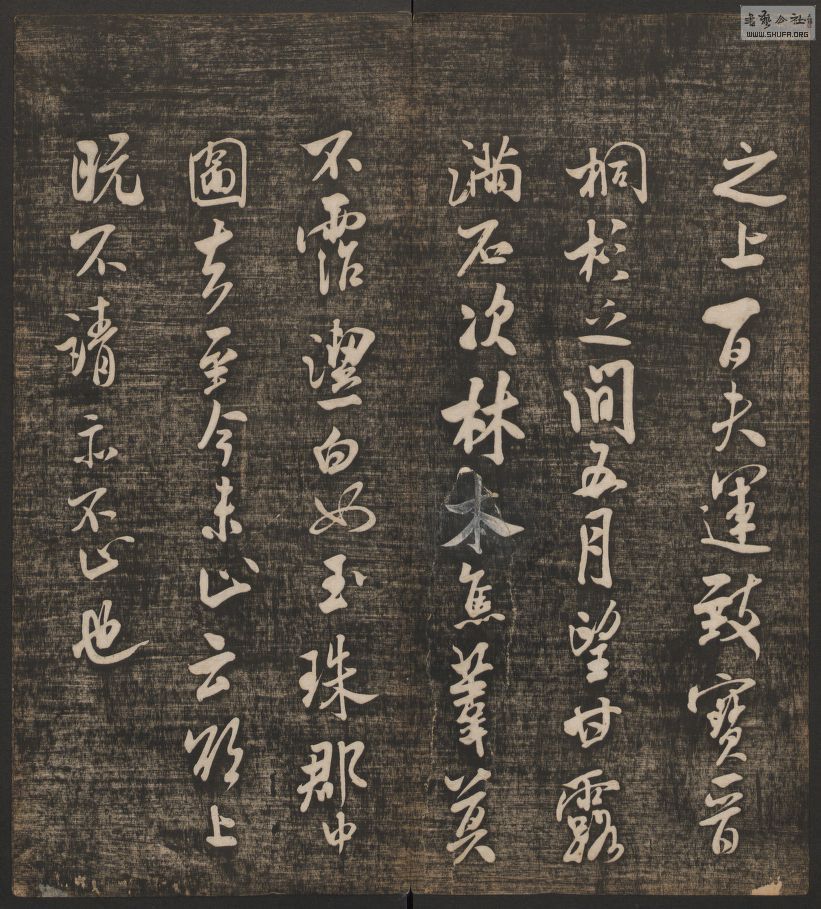 之上百夫運致寶晉
桐杉之間五月望甘露
滿石次林木焦葦莫
不霑潔白如玉珠郡中
圖去至今未止云欲上
既不請亦不止也
書藝公社
WWW.SHUFA.ORG